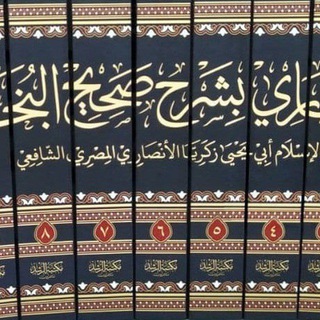 ـاري بشرح صحيح البخـ
الإسلام أبي يحيى زكريا الأنصاري المصري الشافعي
٤ ٥ ٦ ٧ ٨
مكتبة الرشد مكتبة الرشد مكتبة الرشد مكتبة الرشد مكتبة الرشد